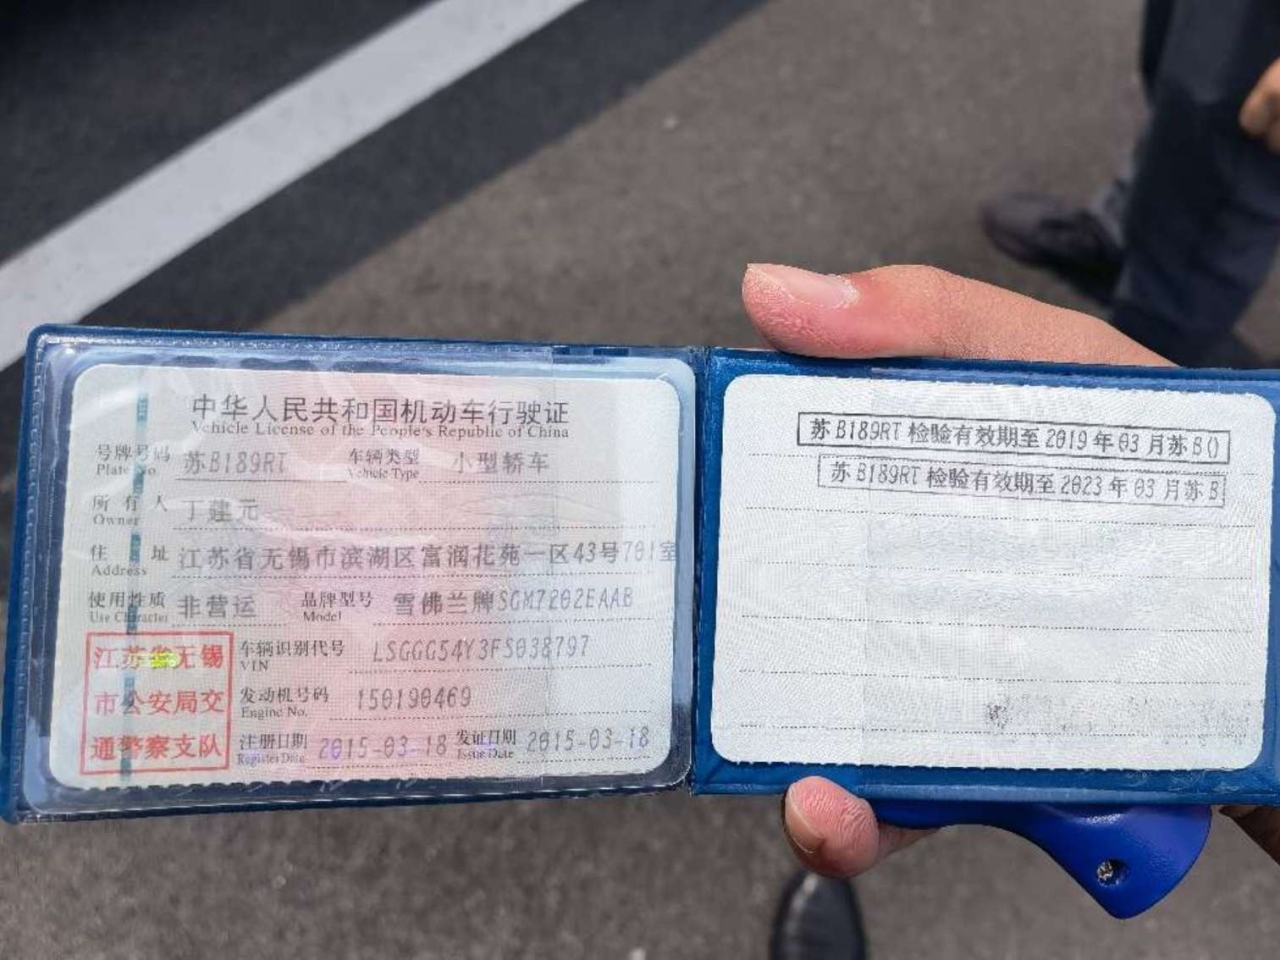 中华人民共和国机动车行驶证
Vehicle License of the People's Republic of China
号牌号码 苏B189RT 车辆类型 小型轿车
Plate No. Vehicle Type
所有人 丁建元
Owner
住址 江苏省无锡市滨湖区富润花苑一区43号701室
Address
使用性质 非营运 品牌型号 雪佛兰牌SGM7202EAAB
Use Character Model
车辆识别代号 LSGGG54Y3FS038797
VIN
发动机号码 150190469
Engine No.
注册日期 2015-03-18 发证日期 2015-03-18
Register Date Issue Date
江苏省无锡
市公安局交
通警察支队
苏B189RT 检验有效期至 2019 年 03 月苏B()
苏B189RT 检验有效期至 2023 年 03 月苏B